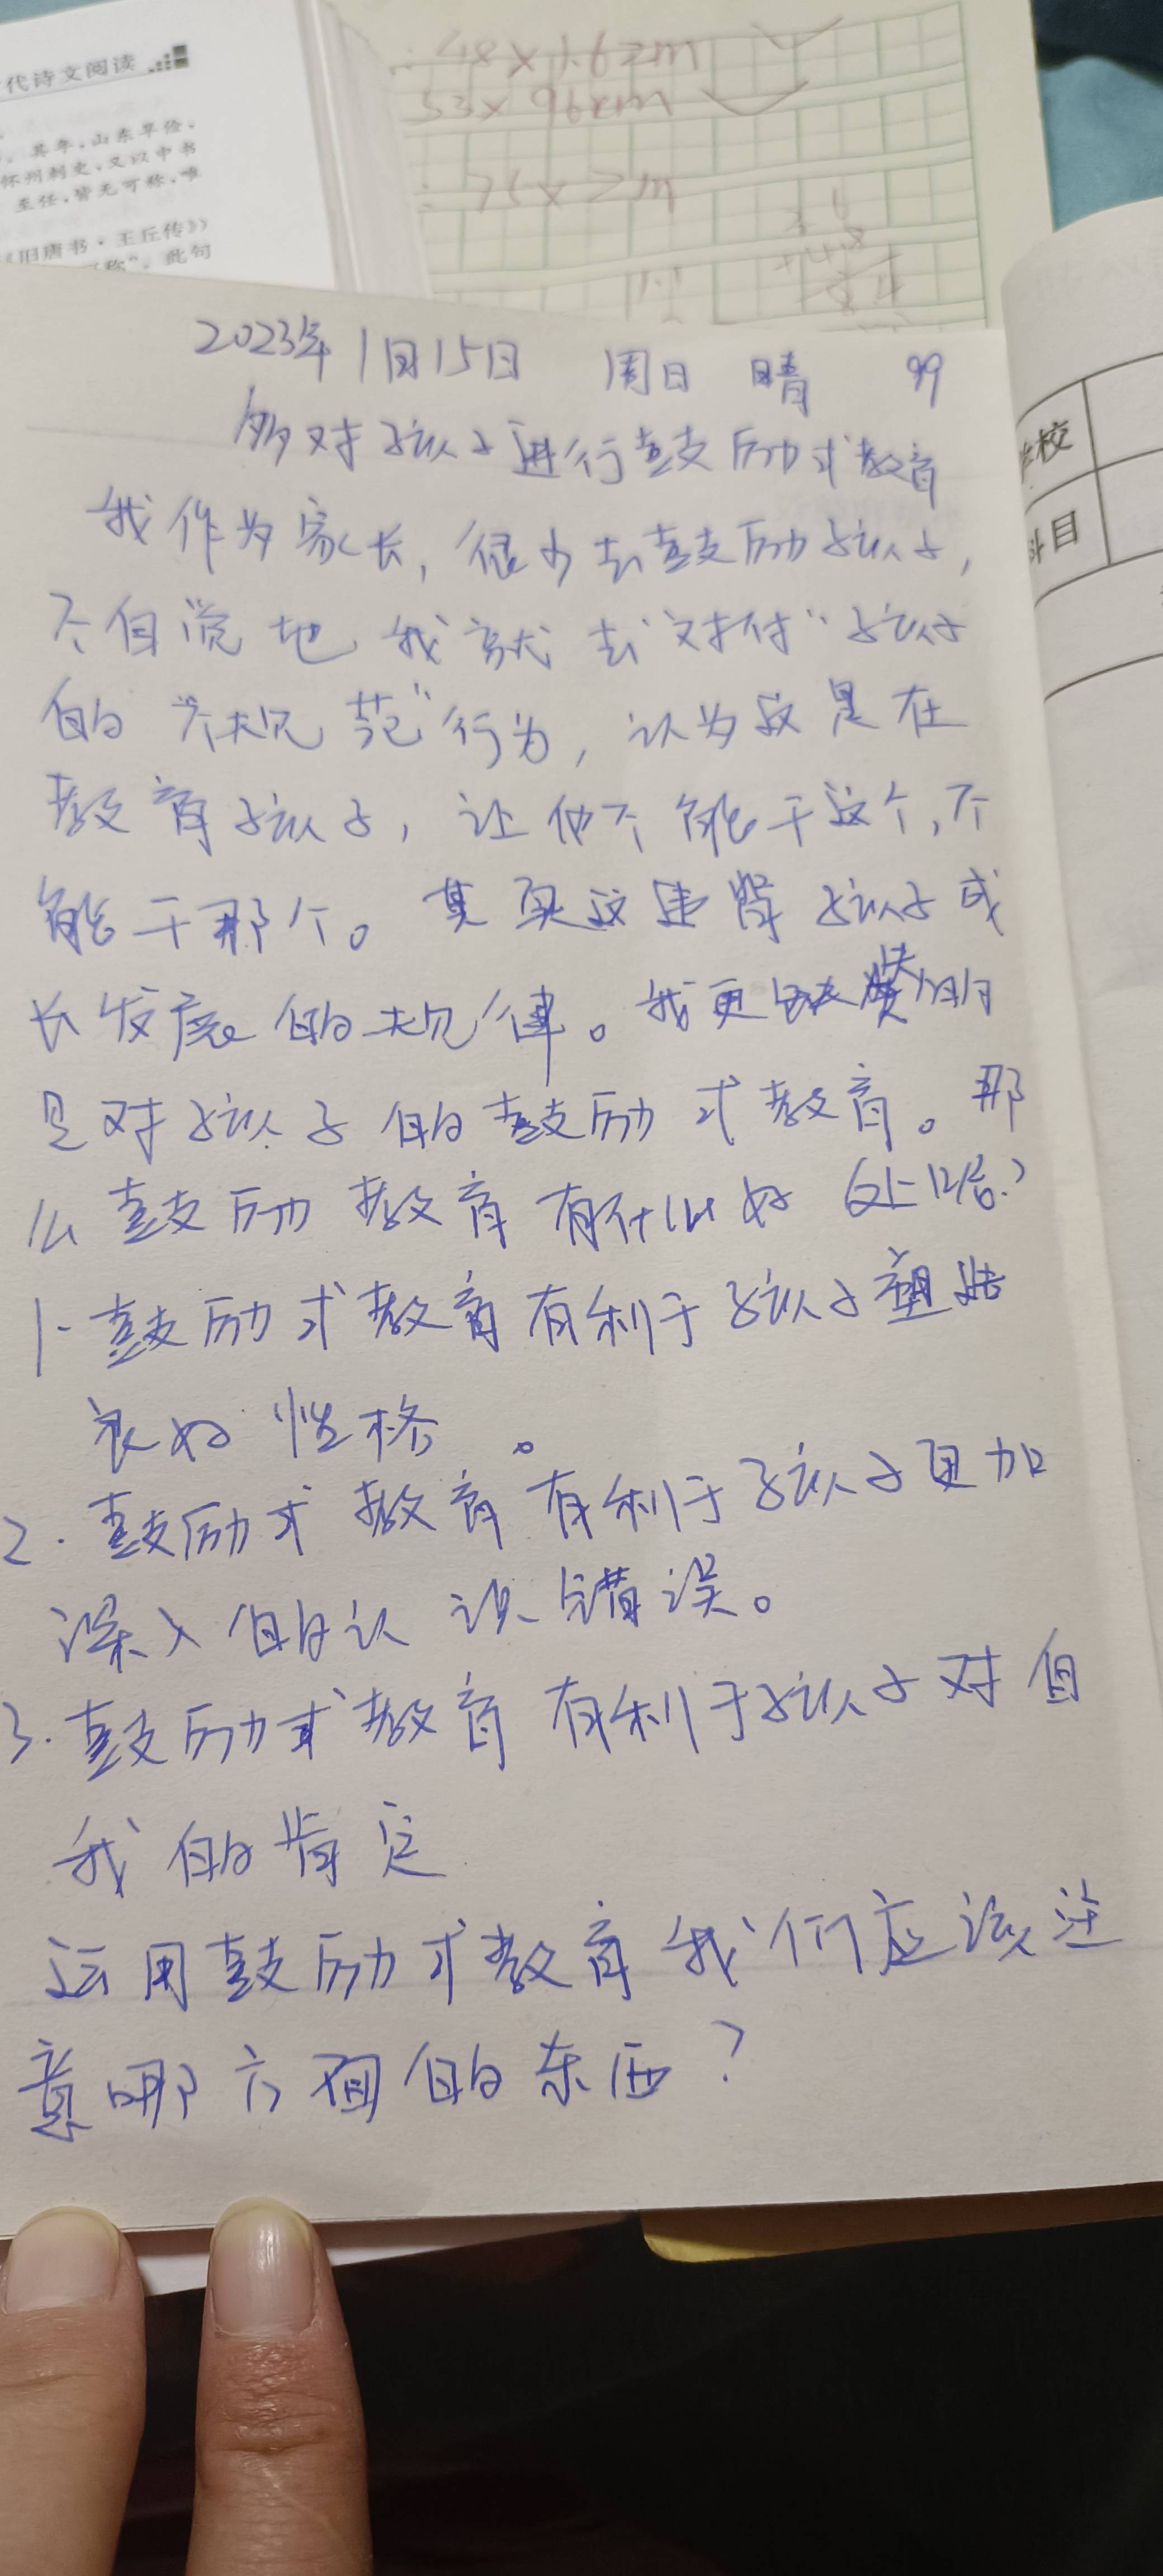 代诗文阅读
其年,山东旱俭,
怀州刺史,又以中书
至任,皆无可称,唯
旧唐书·王丘传》》
称”。此句
48×1.62m
53×96
75×2m
2023年1月15日 周日 晴 99
多对孩子进行鼓励式教育
我作为家长,很少去鼓励孩子,
不自觉地我就去“对付”孩子
的“不规范”行为,认为这是在
教育孩子,让他不能干这个,不
能干那个。其实这违背孩子成
长发展的规律。我更缺失的
是对孩子的鼓励式教育。那
么鼓励教育有什么好处呢?
1.鼓励式教育有利于孩子塑造
良好性格。
2.鼓励式教育有利于孩子更加
深入的认识错误。
3.鼓励式教育有利于孩子对自
我的肯定
运用鼓励式教育我们应该注
意哪方面的东西?
学校
科目